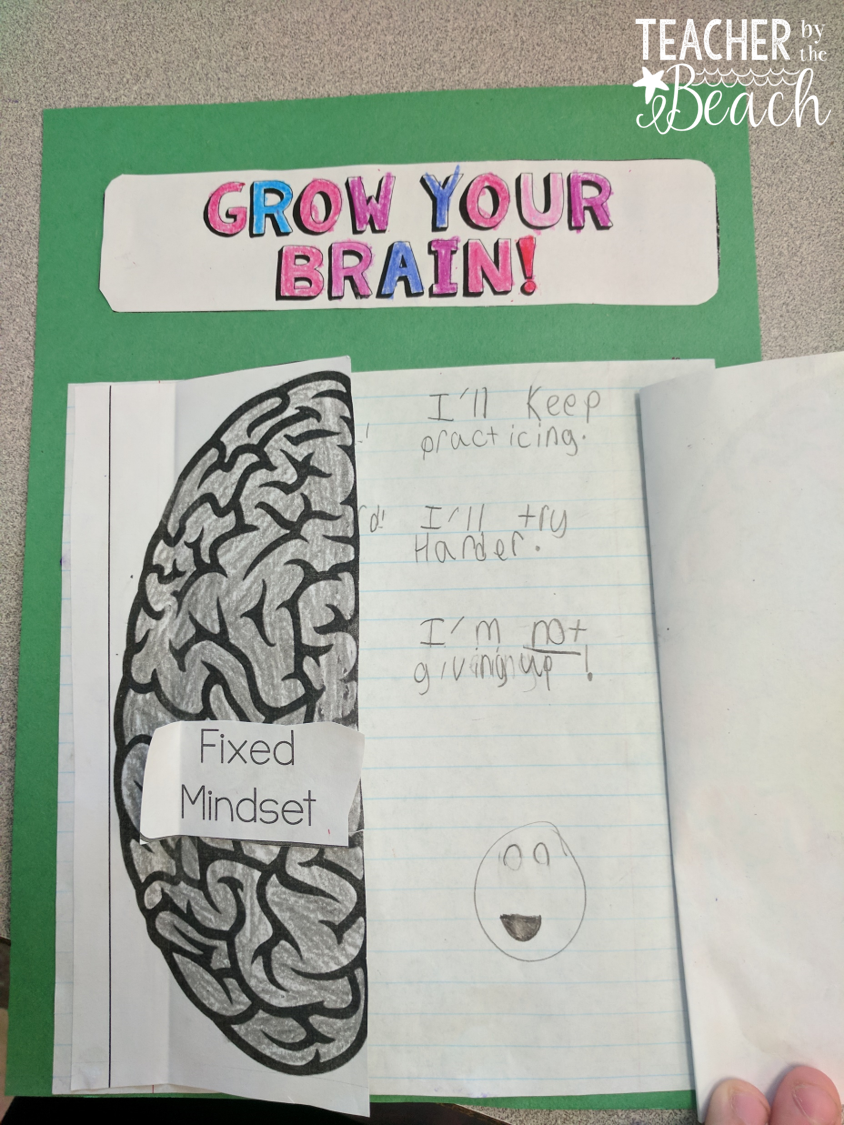 TEACHER by
the
Beach
GROW YOUR
BRAIN!
I'll Keep
practicing.
I'll try
Harder.
I'm not
giving up!
Fixed
Mindset